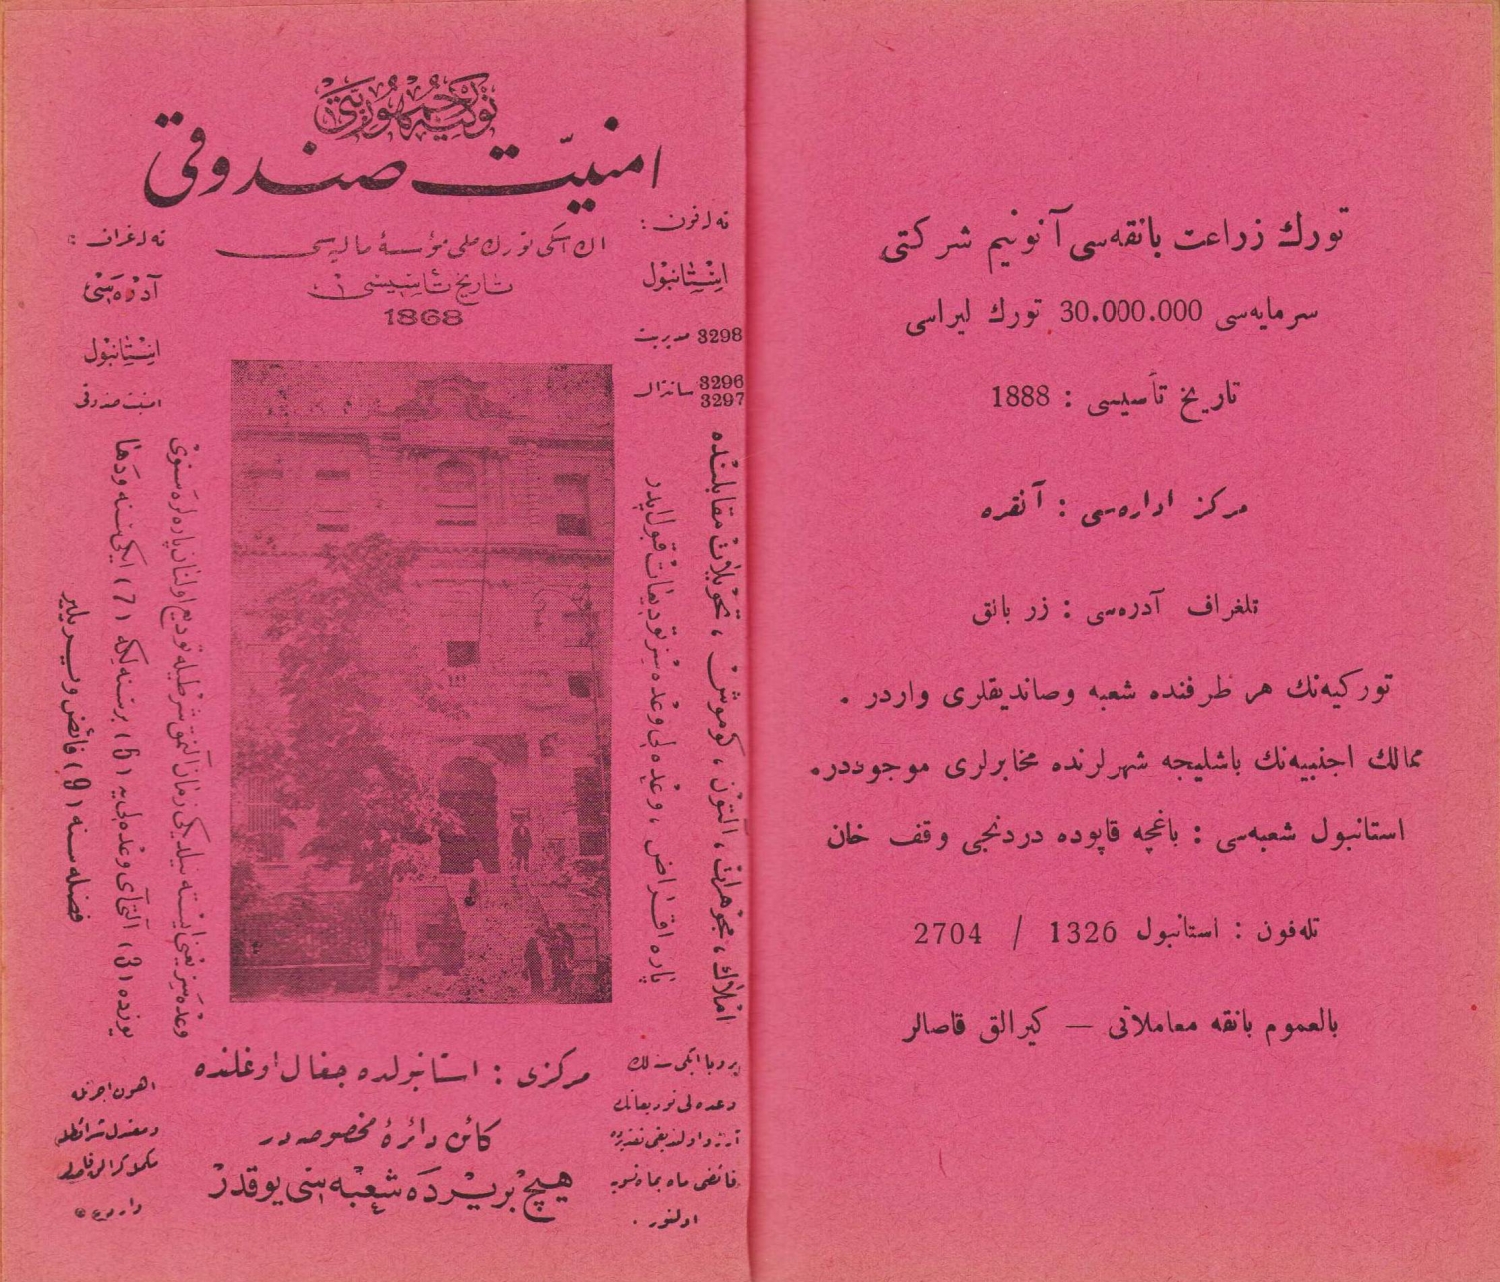 توركیه جمهوریتی
امنیت صندوقی
اك اسكی تورك ملی مؤسسهٔ مالیه‌سی
تاریخ تأسیسی
1868
ته‌له‌فون :
استانبول
3298 مدیریت
3296
3297 سانترال
ته‌له‌غراف :
آدره‌سی
استانبول
امنیت صندوقی
املاك، مجوهرات، آلتون، كوموش، تحویلات مقابلنده
پاره اقراض، وعده‌لی وعده‌سز تودیعات قبول ایدر
وعده‌سز یعنی ایسته‌نیلدیكی زمان آلنمق شرطیله تودیع اولنان پاره‌لره سنوی
یوزده (3)، آلتی آی وعده‌لی‌یه (6)، بر سنه‌لكه (7)، ایكی سنه ودها
فضله سنه (9) فائض ویریلیر
مركزی : استانبولده جغال اوغلنده
كائن دائرهٔ مخصوصه‌در
هیچ بر یرده شعبه‌سی یوقدر
بر ویا ایكی سنه‌لك
وعده‌لی تودیعاتك
آرزو اولندیغی تقدیرده
فائضی ماه بماه تسویه
اولنور .
اهون اجرتله
ومعتدل شرائطله
مكمل كیرالق قاصه‌لر
واردر
تورك زراعت بانقه‌سی آنونیم شركتی
سرمایه‌سی 30.000.000 تورك لیراسی
تاریخ تأسیسی : 1888
مركز اداره‌سی : آنقره
تلغراف آدره‌سی : زر بانق
توركیه‌نك هر طرفنده شعبه وصاندیقلری واردر .
ممالك اجنبیه‌نك باشلیجه شهرلرنده مخابرلری موجوددر.
استانبول شعبه‌سی : باغچه قاپوده دردنجی وقف خان
تله‌فون : استانبول 1326 / 2704
بالعموم بانقه معاملاتی — كیرالق قاصالر